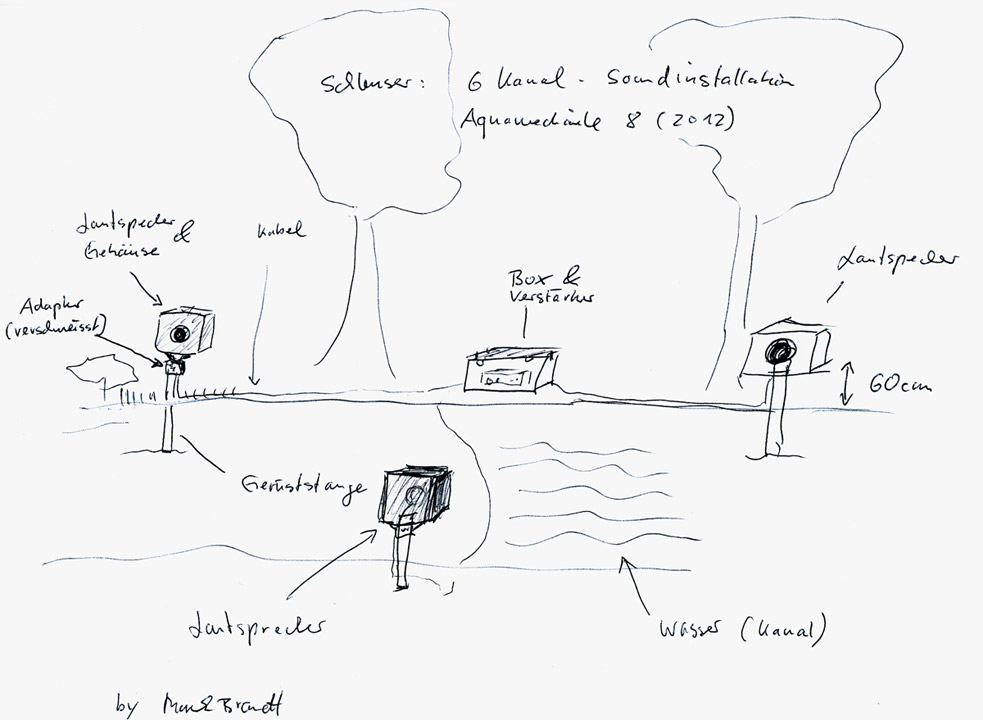 Schleuser: 6 Kanal - Soundinstallation
Aquamediale 8 (2012)
Lautspecher &
Gehäuse
Kabel
Adapter
(verschweisst)
Box &
Verstärker
Lautspecher
60cm
Gerüststange
Lautsprecher
Wasser (Kanal)
by Mark Brandt